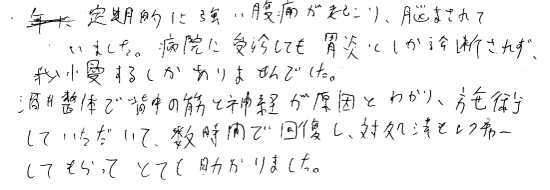 ・定期的に強い腹痛が起こり、悩まされて
いました。病院に受診しても胃炎としか診断されず、
我慢するしかありませんでした。
酒井整体で背中の筋と神経が原因とわかり、施術
していただいて、数時間で回復し、対処法も
してもらってとても助かりました。